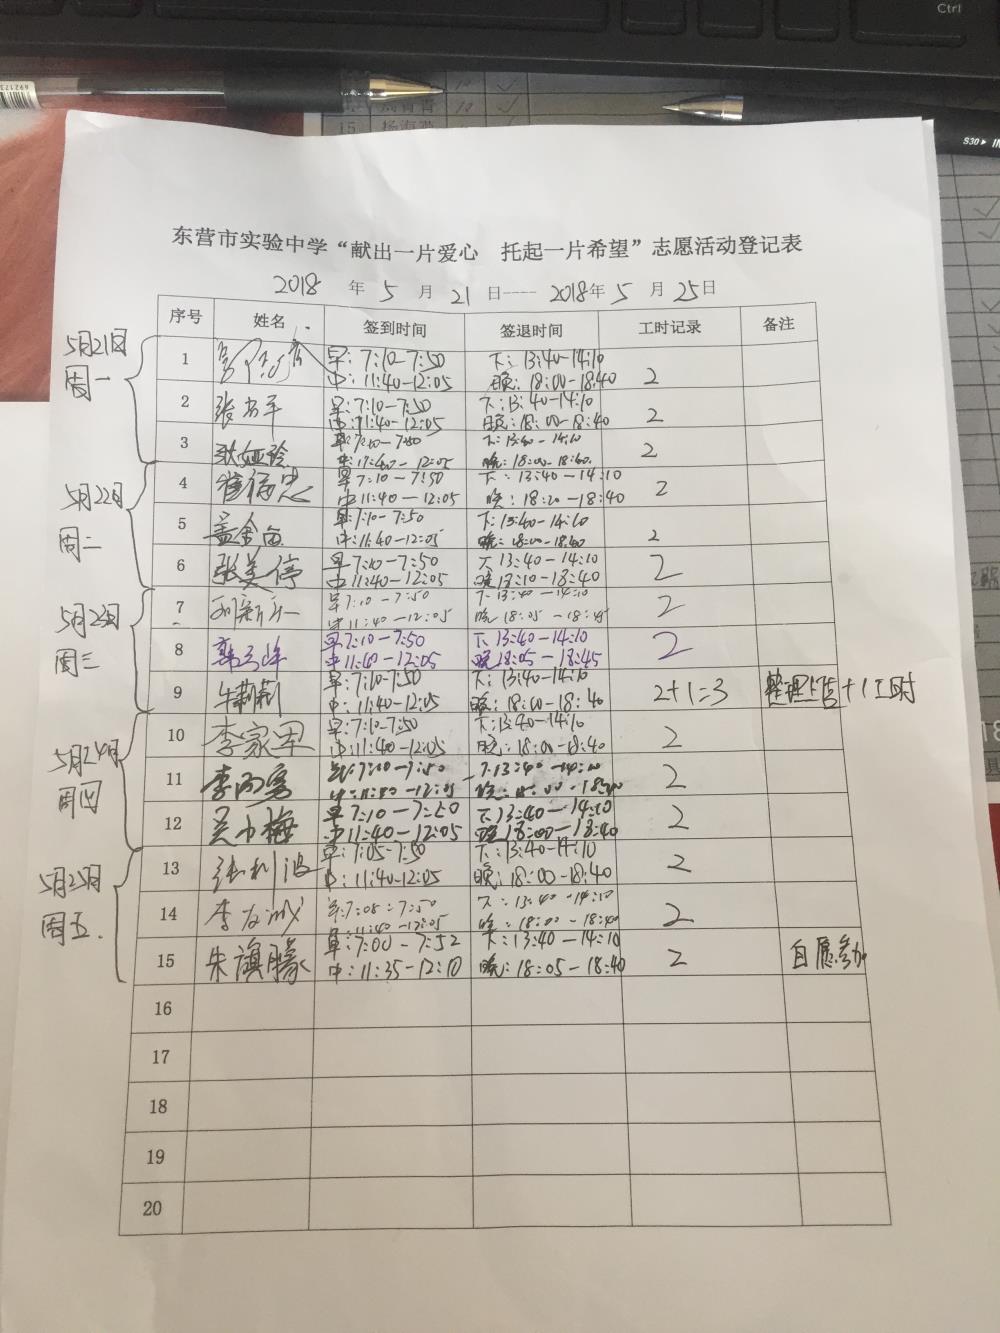 Ctrl
S30
15 杨海燕
东营市实验中学“献出一片爱心 托起一片希望”志愿活动登记表
2018 年 5 月 21 日----2018年 5 月 25日
序号 姓名 签到时间 签退时间 工时记录 备注
5月21日
周一
1 早:7:10-7:50 下:13:40-14:10
中:11:40-12:05 晚:18:00-18:40 2
2 早:7:10-7:50 下:13:40-14:10
中:11:40-12:05 晚:18:00-18:40 2
3 耿娅玲 早:7:10-7:50 下:13:40-14:10
中:11:40-12:05 晚:18:00-18:40 2
5月22日
周二
4 早:7:10-7:50 下:13:40-14:10
中11:40-12:05 晚:18:20-18:40 2
5 早:7:10-7:50 下:13:40-14:10
中:11:40-12:05 晚:18:00-18:40 2
6 张美停 早:7:10-7:50 下13:40-14:10
中11:40-12:05 晚18:10-18:40 2
5月23日
周三
7 早7:10-7:50 下13:40-14:10
中11:40-12:05 晚18:05-18:45 2
8 早7:10-7:50 下13:40-14:10
中11:40-12:05 晚18:05-18:45 2
9 牛莉莉 早:7:10-7:50 下:13:40-14:10
中:11:40-12:05 晚:18:00-18:40 2+1=3 +1工时
5月24日
周四
10 李家军 早:7:10-7:50 下:13:40-14:10
中:11:40-12:05 晚:18:00-18:40 2
11 早:7:10-7:50 下13:40-14:10
中:11:40-12:05 晚:18:00-18:40 2
12 吴小梅 早7:10-7:50 下13:40-14:10
中11:40-12:05 晚18:00-18:40 2
5月25日
周五.
13 张利波 早:7:05-7:50 下:13:40-14:10
中:11:40-12:05 晚:18:00-18:40 2
14 李友成 早:7:05-7:50 下:13:40-14:10
中:11:40-12:05 晚:18:00-18:40 2
15 朱旗朦 早:7:00-7:52 下:13:40-14:10
中:11:35-12:10 晚:18:05-18:40 2 自愿参加
16
17
18
19
20